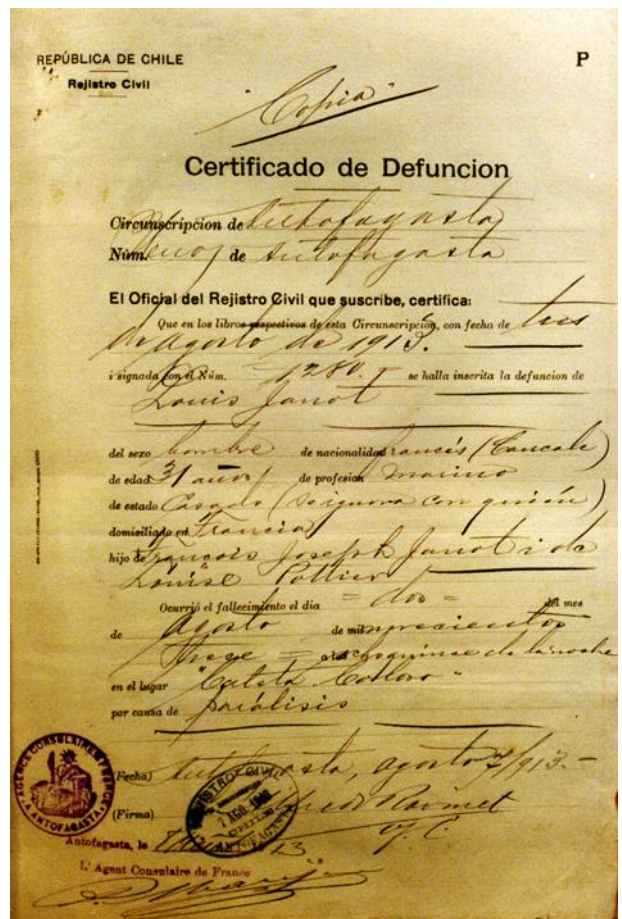 REPÚBLICA DE CHILE
P
Rejistro Civil
"Copia"
Certificado de Defuncion
Circunscripcion de Antofagasta
Núm. de Antofagasta
El Oficial del Rejistro Civil que suscribe, certifica:
Que en los libros respectivos de esta Circunscripción, con fecha de tres
de agosto de 1913.
i signada con el Núm. 1280. se halla inscrita la defuncion de
Louis Janot
del sexo hombre de nacionalidad francés (Cancale)
de edad 31 años de profesion marino
de estado Casado (se ignora con quién)
domiciliado en Francia
hijo de François Joseph Janot i de
Louise Pottier
Ocurrió el fallecimiento el dia = dos = del mes
de agosto de mil novecientos
trece = a las de la noche
en el lugar "Caleta Coloso"
por causa de parálisis
(Fecha) Antofagasta, agosto 7/913.-
REGISTRO CIVIL
7 AGO. 1913
ANTOFAGASTA
(Firma)
AGENCE CONSULAIRE DE FRANCE
A ANTOFAGASTA
Antofagasta, le 13
L'Agent Consulaire de France